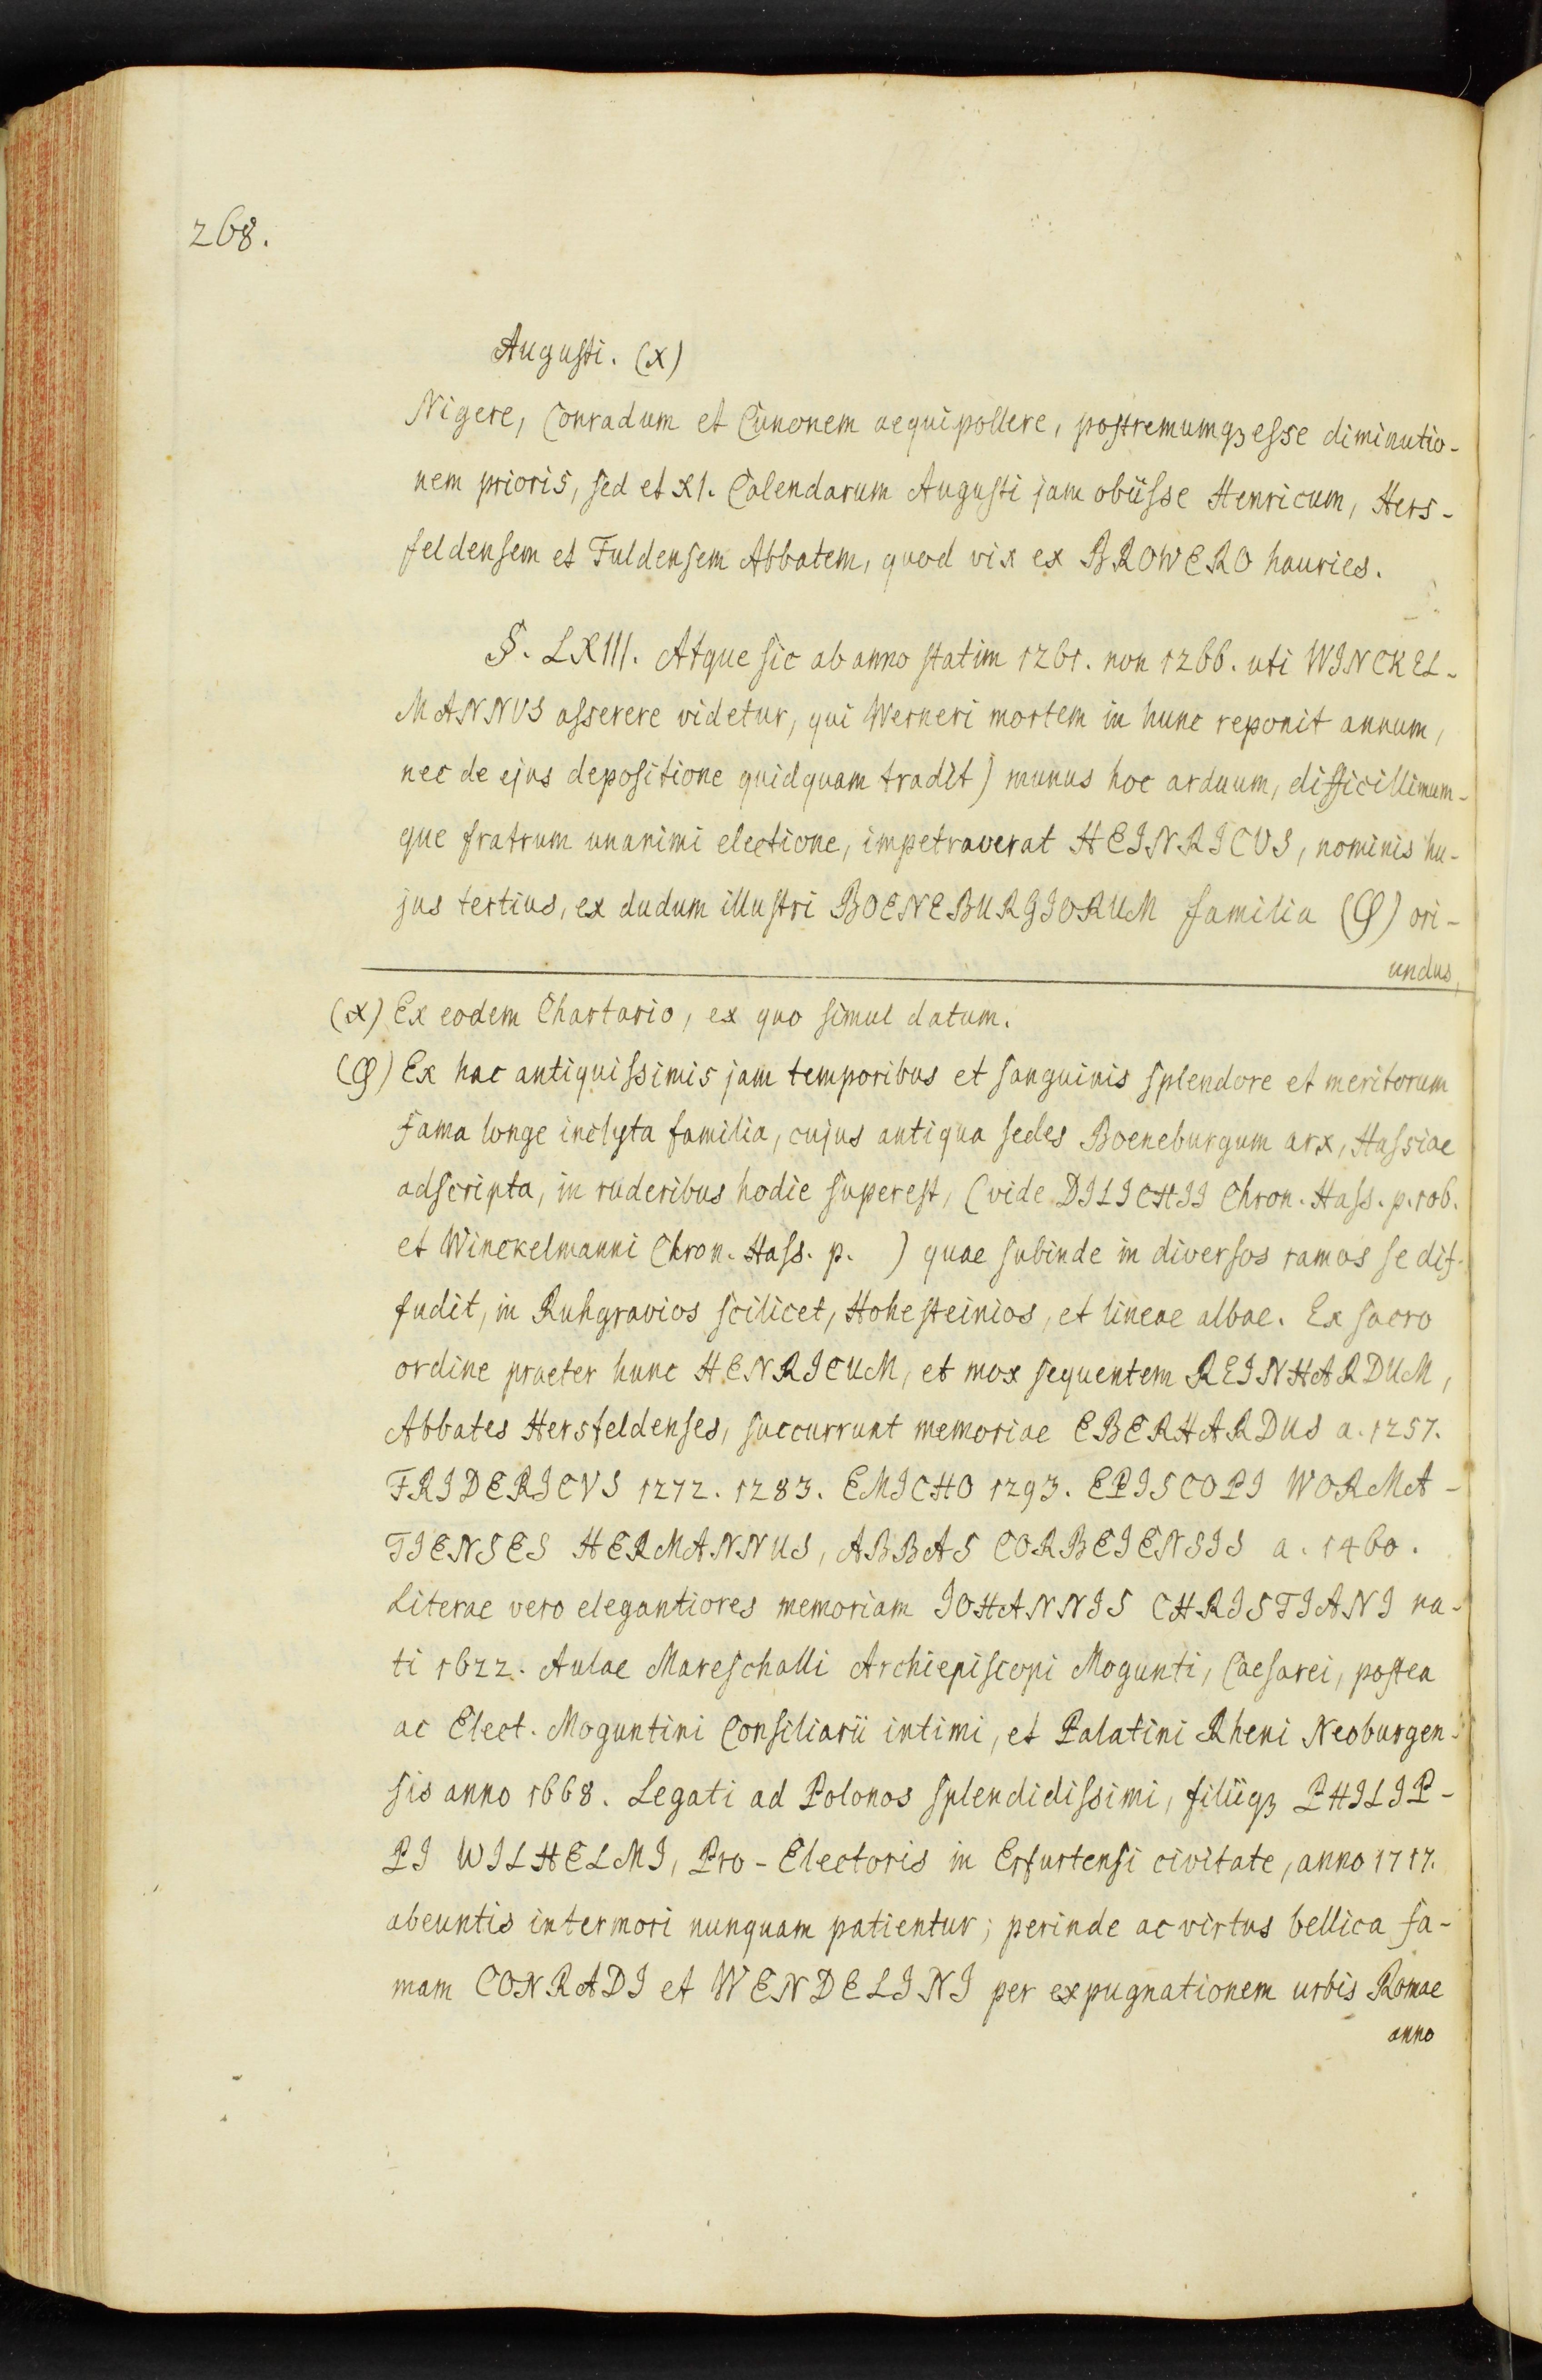 268.
Augusti. (x)
Nigere, Conradum et Cunonem aequipollere, postremumqꝫ esse diminutio-
nem prioris, sed et XI. Calendarum Augusti jam obiisse Henricum, Hers-
feldensem et Fuldensem Abbatem, quod vix ex BROWERO hauries.
§. LXIII. Atque sic ab anno statim 1261. non 1266. uti WINCKEL-
MANNVS asserere videtur, qui Werneri mortem in hunc reponit annum,
nec de ejus depositione quidquam tradit) munus hoc arduum, difficillimum-
que fratrum unanimi electione, impetraverat HEINRICVS, nominis hu-
jus tertius, ex dudum illustri BOENEBURGIORUM familia (φ) ori-
undus,
(x) Ex eodem Chartario, ex quo simul datum.
(φ) Ex hac antiquissimis jam temporibus et sanguinis splendore et meritorum
fama longe inclyta familia, cujus antiqua sedes Boeneburgum arx, Hassiae
adscripta, in ruderibus hodie superest, (vide DILICHII Chron. Hass. p. 106.
et Winckelmanni Chron. Hass. p. ) quae subinde in diversos ramos se dif-
fudit, in Ruhgravios scilicet, Hohesteinios, et lineae albae. Ex sacro
ordine praeter hunc HENRICUM, et mox sequentem REINHARDUM,
Abbates Hersfeldenses, succurrunt memoriae EBERHARDUS a. 1257.
FRIDERICVS 1272. 1283. EMICHO 1293. EPISCOPI WORMA-
TIENSES HERMANNUS, ABBAS CORBEIENSIS a. 1460.
Literae vero elegantiores memoriam IOHANNIS CHRISTIANI na-
ti 1622. Aulae Mareschalli Archiepiscopi Mogunti, Caesarei, postea
ac Elect. Moguntini Consiliarii intimi, et Palatini Rheni Neoburgen-
sis anno 1668. Legati ad Polonos splendidissimi, filiiqꝫ PHILIP-
PI WILHELMI, Pro-Electoris in Erfurtensi civitate, anno 1717.
abeuntis intermori nunquam patientur; perinde ac virtus bellica fa-
mam CONRADI et WENDELINI per expugnationem urbis Romae
anno